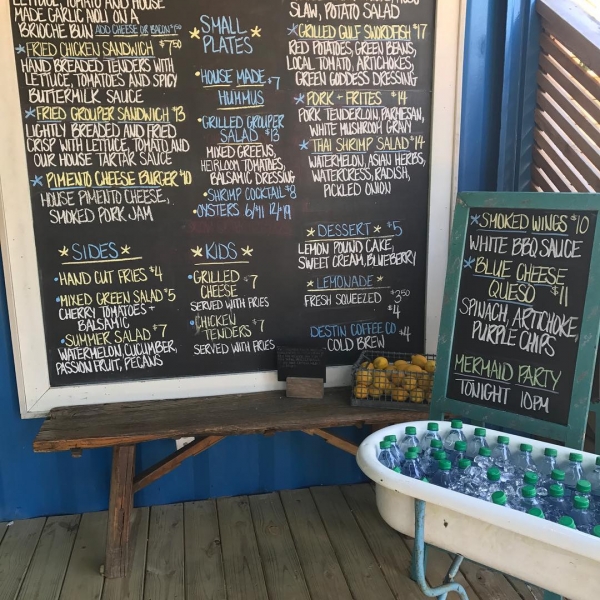 LETTUCE, TOMATO AND HOUSE
MADE GARLIC AIOLI ON A
BRIOCHE BUN ADD CHEESE OR BACON $1.50
*FRIED CHICKEN SANDWICH $7.50
HAND BREADED TENDERS WITH
LETTUCE, TOMATOES AND SPICY
BUTTERMILK SAUCE
*FRIED GROUPER SANDWICH $13
LIGHTLY BREADED AND FRIED
CRISP WITH LETTUCE, TOMATO AND
OUR HOUSE TARTAR SAUCE
*PIMENTO CHEESE BURGER $10
HOUSE PIMENTO CHEESE,
SMOKED PORK JAM
*SIDES*
•HAND CUT FRIES $4
•MIXED GREEN SALAD $5
CHERRY TOMATOES +
BALSAMIC
•SUMMER SALAD $7
WATERMELON, CUCUMBER,
PASSION FRUIT, PECANS
*SMALL
PLATES*
•HOUSE MADE $7
HUMMUS
•GRILLED GROUPER
SALAD $13
MIXED GREENS,
HEIRLOOM TOMATOES,
BALSAMIC DRESSING
•SHRIMP COCKTAIL $8
•OYSTERS 6/$11 12/$19
*KIDS*
•GRILLED $7
CHEESE
SERVED WITH FRIES
•CHICKEN $7
TENDERS
SERVED WITH FRIES
SLAW, POTATO SALAD
*GRILLED GULF SWORDFISH $17
RED POTATOES, GREEN BEANS,
LOCAL TOMATO, ARTICHOKES,
GREEN GODDESS DRESSING
*PORK + FRITES $14
PORK TENDERLOIN, PARMESAN,
WHITE MUSHROOM GRAVY
*THAI SHRIMP SALAD $14
WATERMELON, ASIAN HERBS,
WATERCRESS, RADISH,
PICKLED ONION
*DESSERT* $5
LEMON POUND CAKE,
SWEET CREAM, BLUEBERRY
*LEMONADE*
FRESH SQUEEZED $3.50
$4
DESTIN COFFEE CO $4
COLD BREW
*SMOKED WINGS $10
WHITE BBQ SAUCE
*BLUE CHEESE
QUESO $11
SPINACH, ARTICHOKE,
PURPLE CHIPS
MERMAID PARTY
TONIGHT 10PM